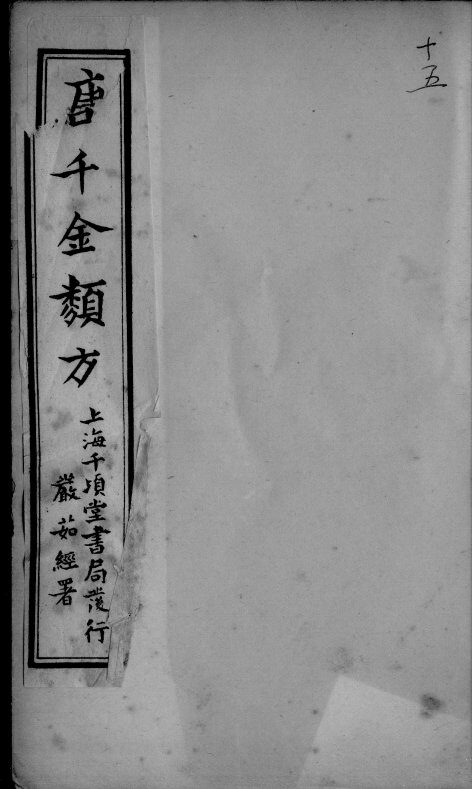 十五
唐千金類方
上海千頃堂書局發行
嚴茹經署